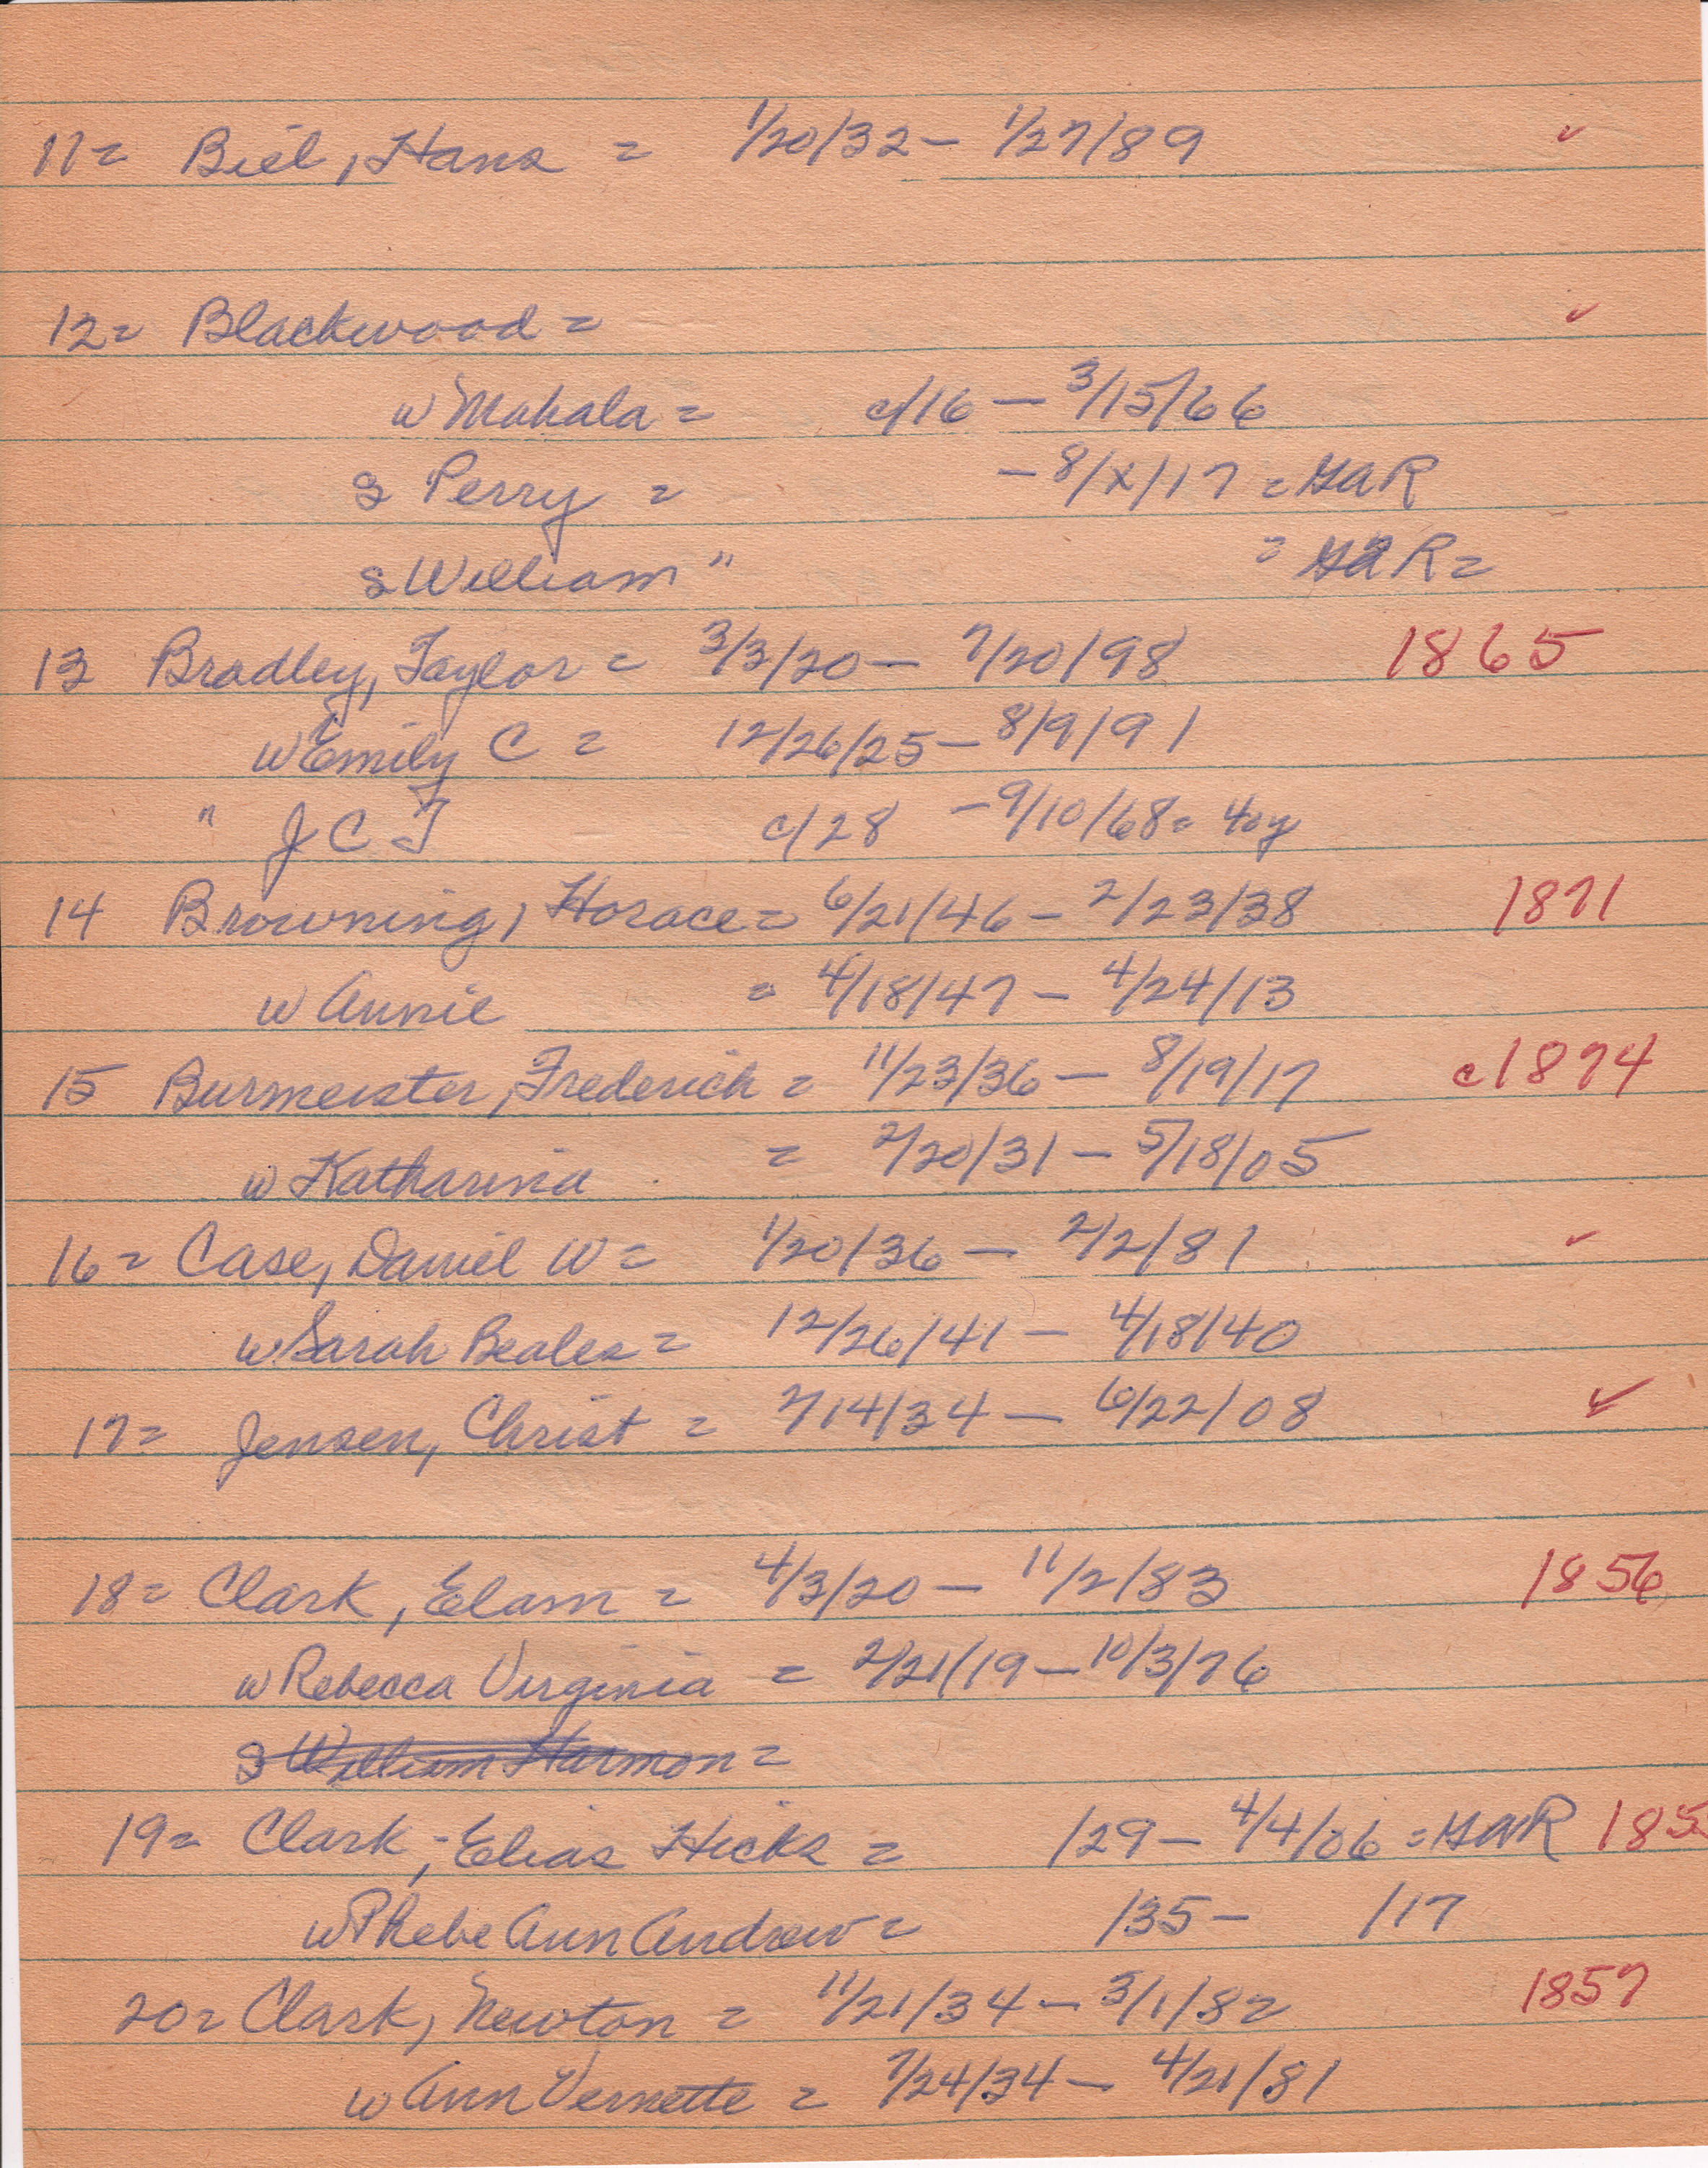 11= Biel, Hans = 1/20/32 - 1/27/89 ✓
12= Blackwood = ✓
w Mahala = c/16 - 3/15/66
s Perry = - 8/x/17 = GAR
s William " = GAR =
13 Bradley, Taylor = 3/3/20 - 7/20/98 1865
w Emily C = 12/26/25 - 8/9/91
" J C T c/28 - 9/10/68 = 40y
14 Browning, Horace = 6/21/46 - 2/23/38 1871
w Annie = 4/18/47 - 4/24/13
15 Burmeister, Frederich = 11/23/36 - 8/19/17 c1874
w Katharina = 2/20/31 - 5/18/05
16= Case, Daniel W = 1/20/36 - 2/2/81 ✓
w Sarah Beales = 12/26/41 - 4/18/40
17= Jensen, Christ = 7/14/34 - 6/22/08 ✓
18= Clark, Elam = 4/3/20 - 11/2/83 1856
w Rebecca Virginia = 2/21/19 - 10/3/76
s William Harmon =
19= Clark, Elias Hicks = /29 - 4/4/06 = GAR 185
w Phebe Ann Andrew = /35 - /17
20= Clark, Newton = 11/21/34 - 3/1/82 1857
w Ann Vernette = 7/24/34 - 4/21/81